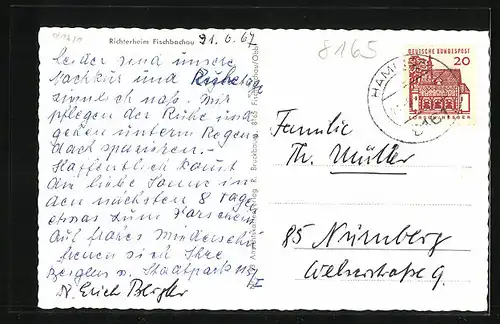 Richterheim Fischbachau
21. 6. 67
Leider sind unsere
Nachkur und Ruhetage
ziemlich naß. Wir
pflegen der Ruhe und
gehen unterm Regen-
dach spazieren.
Hoffentlich kommt
die liebe Sonne in
den nächsten 8 Tage
etwas zum Vorschein
Auf frohes Wiedersehn
freuen sich Ihre
Dr. Erich
8165
DEUTSCHE BUNDESPOST
20
Familie
Th. Müller
85 Nürnberg
Welserstraße 9.